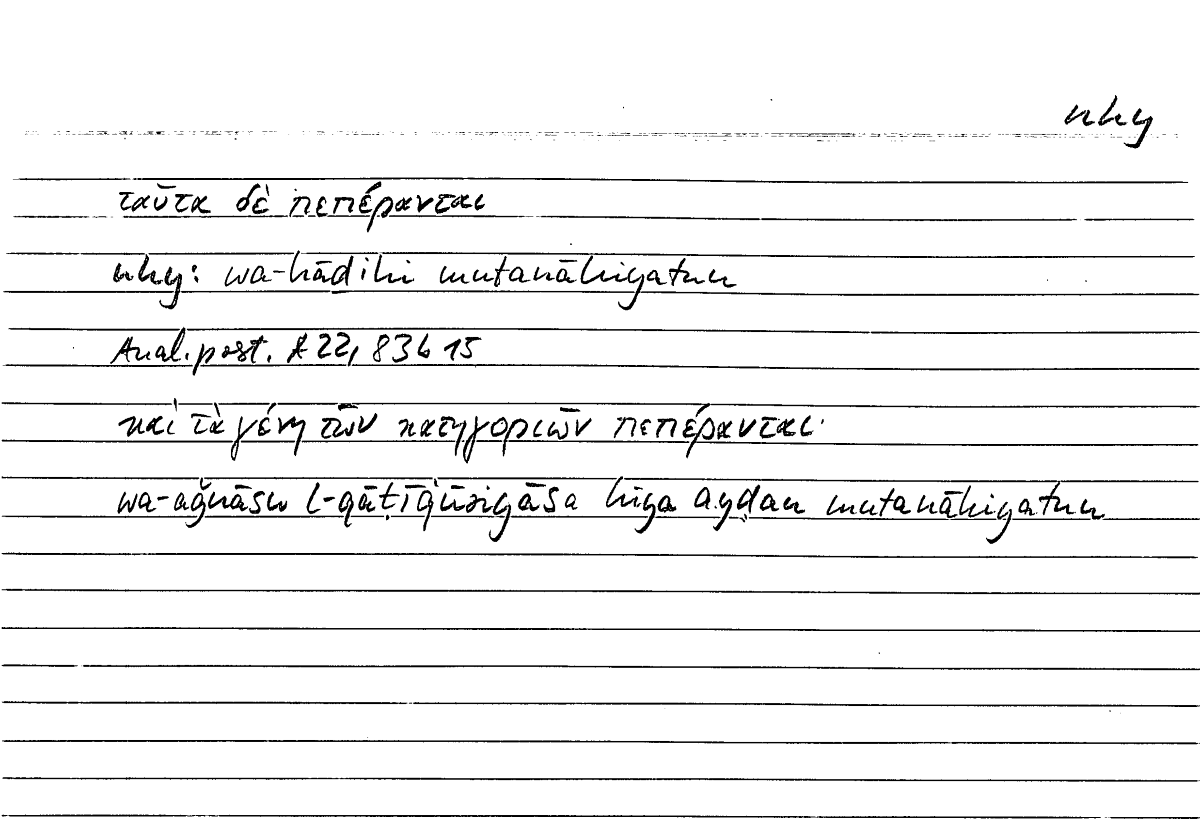 nhy
ταῦτα δὲ πεπέρανται
nhy: wa-hāḏihi mutanāhiyatun
Anal. post. A 22, 83b 15
καὶ τὰ γένη τῶν κατηγοριῶν πεπέρανται·
wa-aǧnāsu l-qāṭīġūriyāsa hiya ayḍan mutanāhiyatun